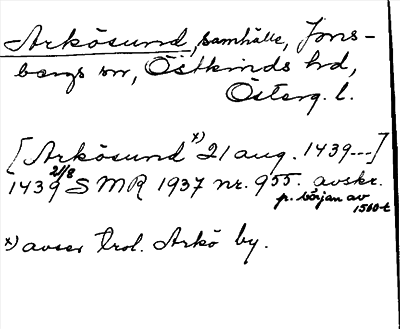 Arkösund, samhälle, Jons-
bergs sn, Östkinds hd,
Österg. l.
[Arkösund x) 21 aug. 1439---]
1439 21/8 SMR 1937 nr. 955. avskr.
p. början av
1500-t
x) avser trol. Arkö by.